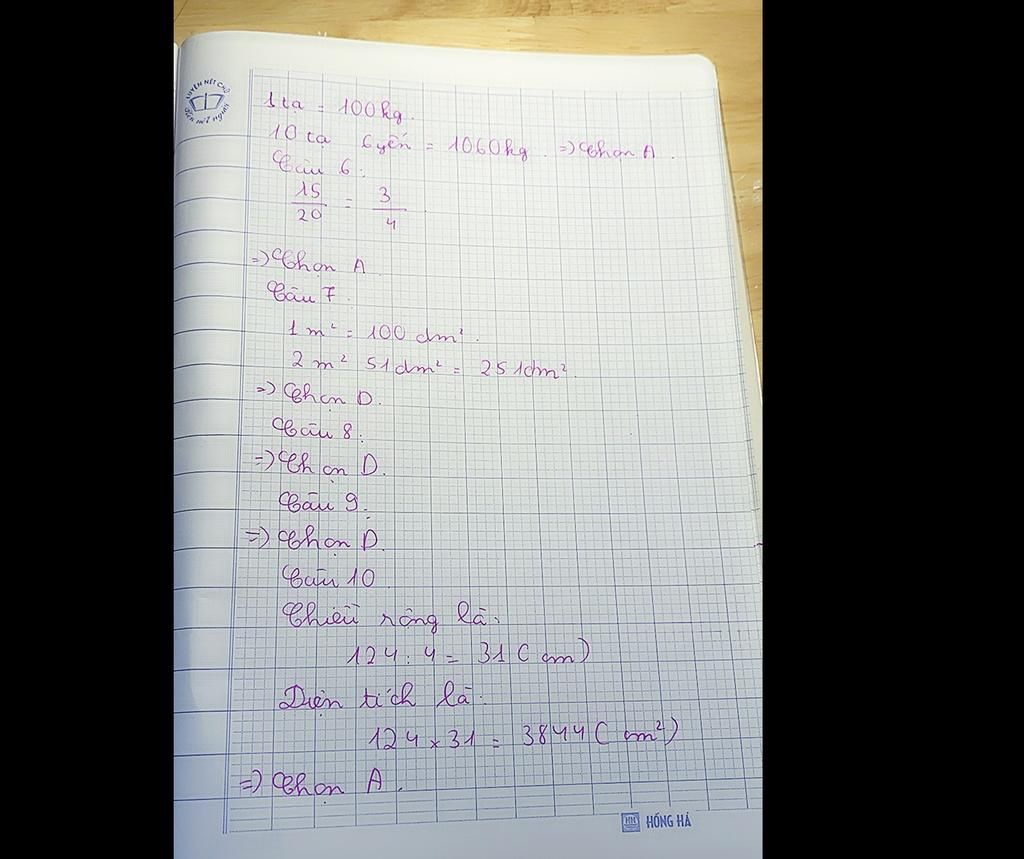 LUYỆN NÉT CHỮ
RÈN NẾT NGƯỜI
1 tạ = 100 kg.
10 tạ 6 yến = 1060 kg. => Chọn A.
Câu 6:
15/20 = 3/4.
=> Chọn A.
Câu 7.
1 m² = 100 dm².
2 m² 51 dm² = 251 dm².
=> Chọn D.
Câu 8:
=> Chọn D.
Câu 9:
=> Chọn D.
Câu 10
Chiều rộng là:
124 : 4 = 31 (cm)
Diện tích là:
124 x 31 = 3844 (cm²)
=> Chọn A.
HH HỒNG HÀ